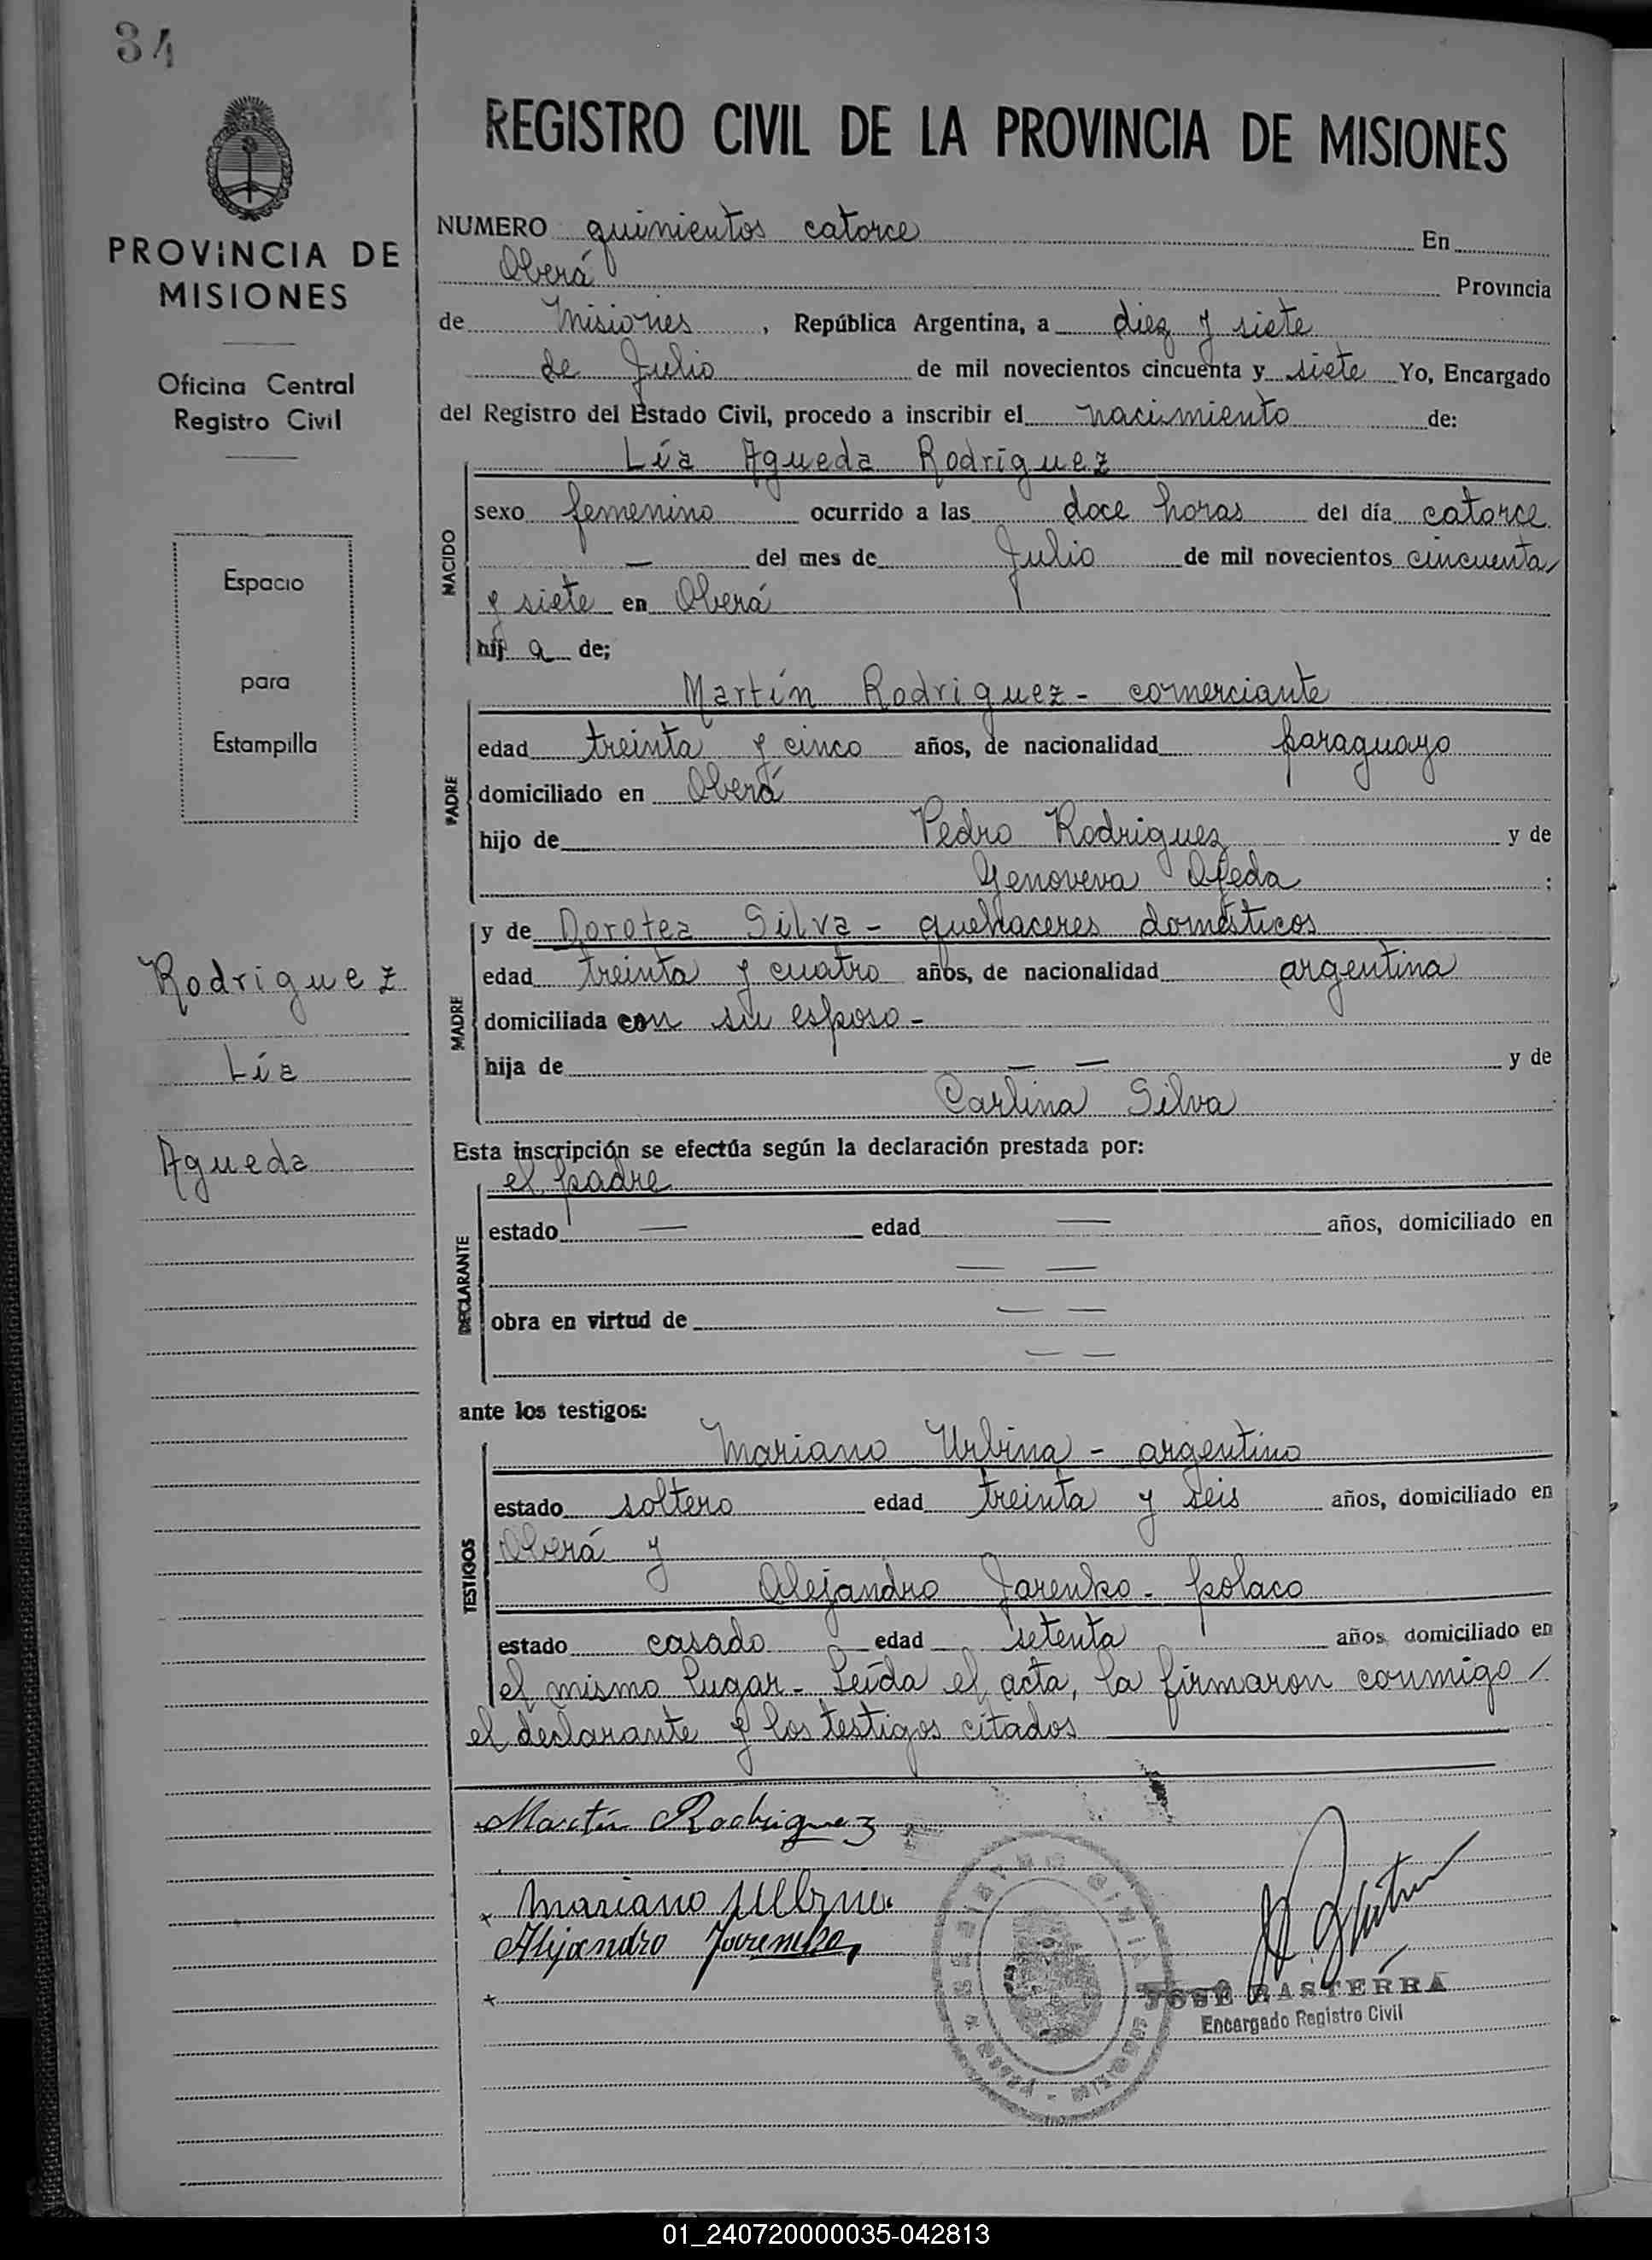 34
PROVINCIA DE
MISIONES
Oficina Central
Registro Civil
Espacio
para
Estampilla
Rodriguez
Lía
Agueda
REGISTRO CIVIL DE LA PROVINCIA DE MISIONES
NUMERO quinientos catorce En
Oberá Provincia
de Misiones, República Argentina, a diez y siete
de Julio de mil novecientos cincuenta y siete Yo, Encargado
del Registro del Estado Civil, procedo a inscribir el nacimiento de:
Lía Agueda Rodríguez
NACIDO
sexo femenino ocurrido a las doce horas del día catorce
— del mes de Julio de mil novecientos cincuenta
y siete en Oberá
hij a de;
Martín Rodriguez - comerciante
PADRE
edad treinta y cinco años, de nacionalidad paraguayo
domiciliado en Oberá
hijo de Pedro Rodriguez y de
Genoveva Ojeda ;
MADRE
y de Dorotea Silva - quehaceres domésticos
edad treinta y cuatro años, de nacionalidad argentina
domiciliada con su esposo -
hija de — — y de
Carlina Silva
Esta inscripción se efectúa según la declaración prestada por:
el padre
DECLARANTE
estado — edad — años, domiciliado en
— —
obra en virtud de — —
— —
ante los testigos:
Mariano Urbina - argentino
TESTIGOS
estado soltero edad treinta y seis años, domiciliado en
Oberá y
Alejandro Jarenko - polaco
estado casado edad setenta años, domiciliado en
el mismo lugar - Leída el acta, la firmaron conmigo /
el declarante y los testigos citados
Martín Rodriguez
Mariano Urbina
Alejandro Jarenko
REGISTRO CIVIL
OBERA - MISIONES
JOSÉ BASTERRA
Encargado Registro Civil
01_240720000035-042813